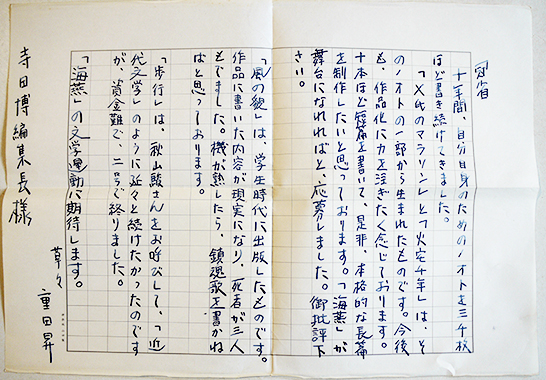 冠省
十年間、自分自身のためのノオトを三千枚
ほど書き続けてきました。
「X氏のマラソン」と「火宅4年」は、そ
のノオトの一部から生まれたものです。今後
も、作品化に力を注ぎたく念じております。
十本ほど短篇を書いて、是非、本格的な長篇
を制作したいと思っております。「海燕」が
舞台になれればと、応募しました。御批評下
さい。
「風の貌」は、学生時代に出版したものです。
作品に書いた内容が現実になり、死者が三人
もでました。機が熟したら、鎮魂歌を書かね
ばと思っております。
「歩行」は、秋山駿さんをお呼びして、「近
代文学」のように延々と続けたかったのです
が、資金難で、二号で終りました。
「海燕」の文学運動に期待します。
草々
重田昇
寺田博編集長様